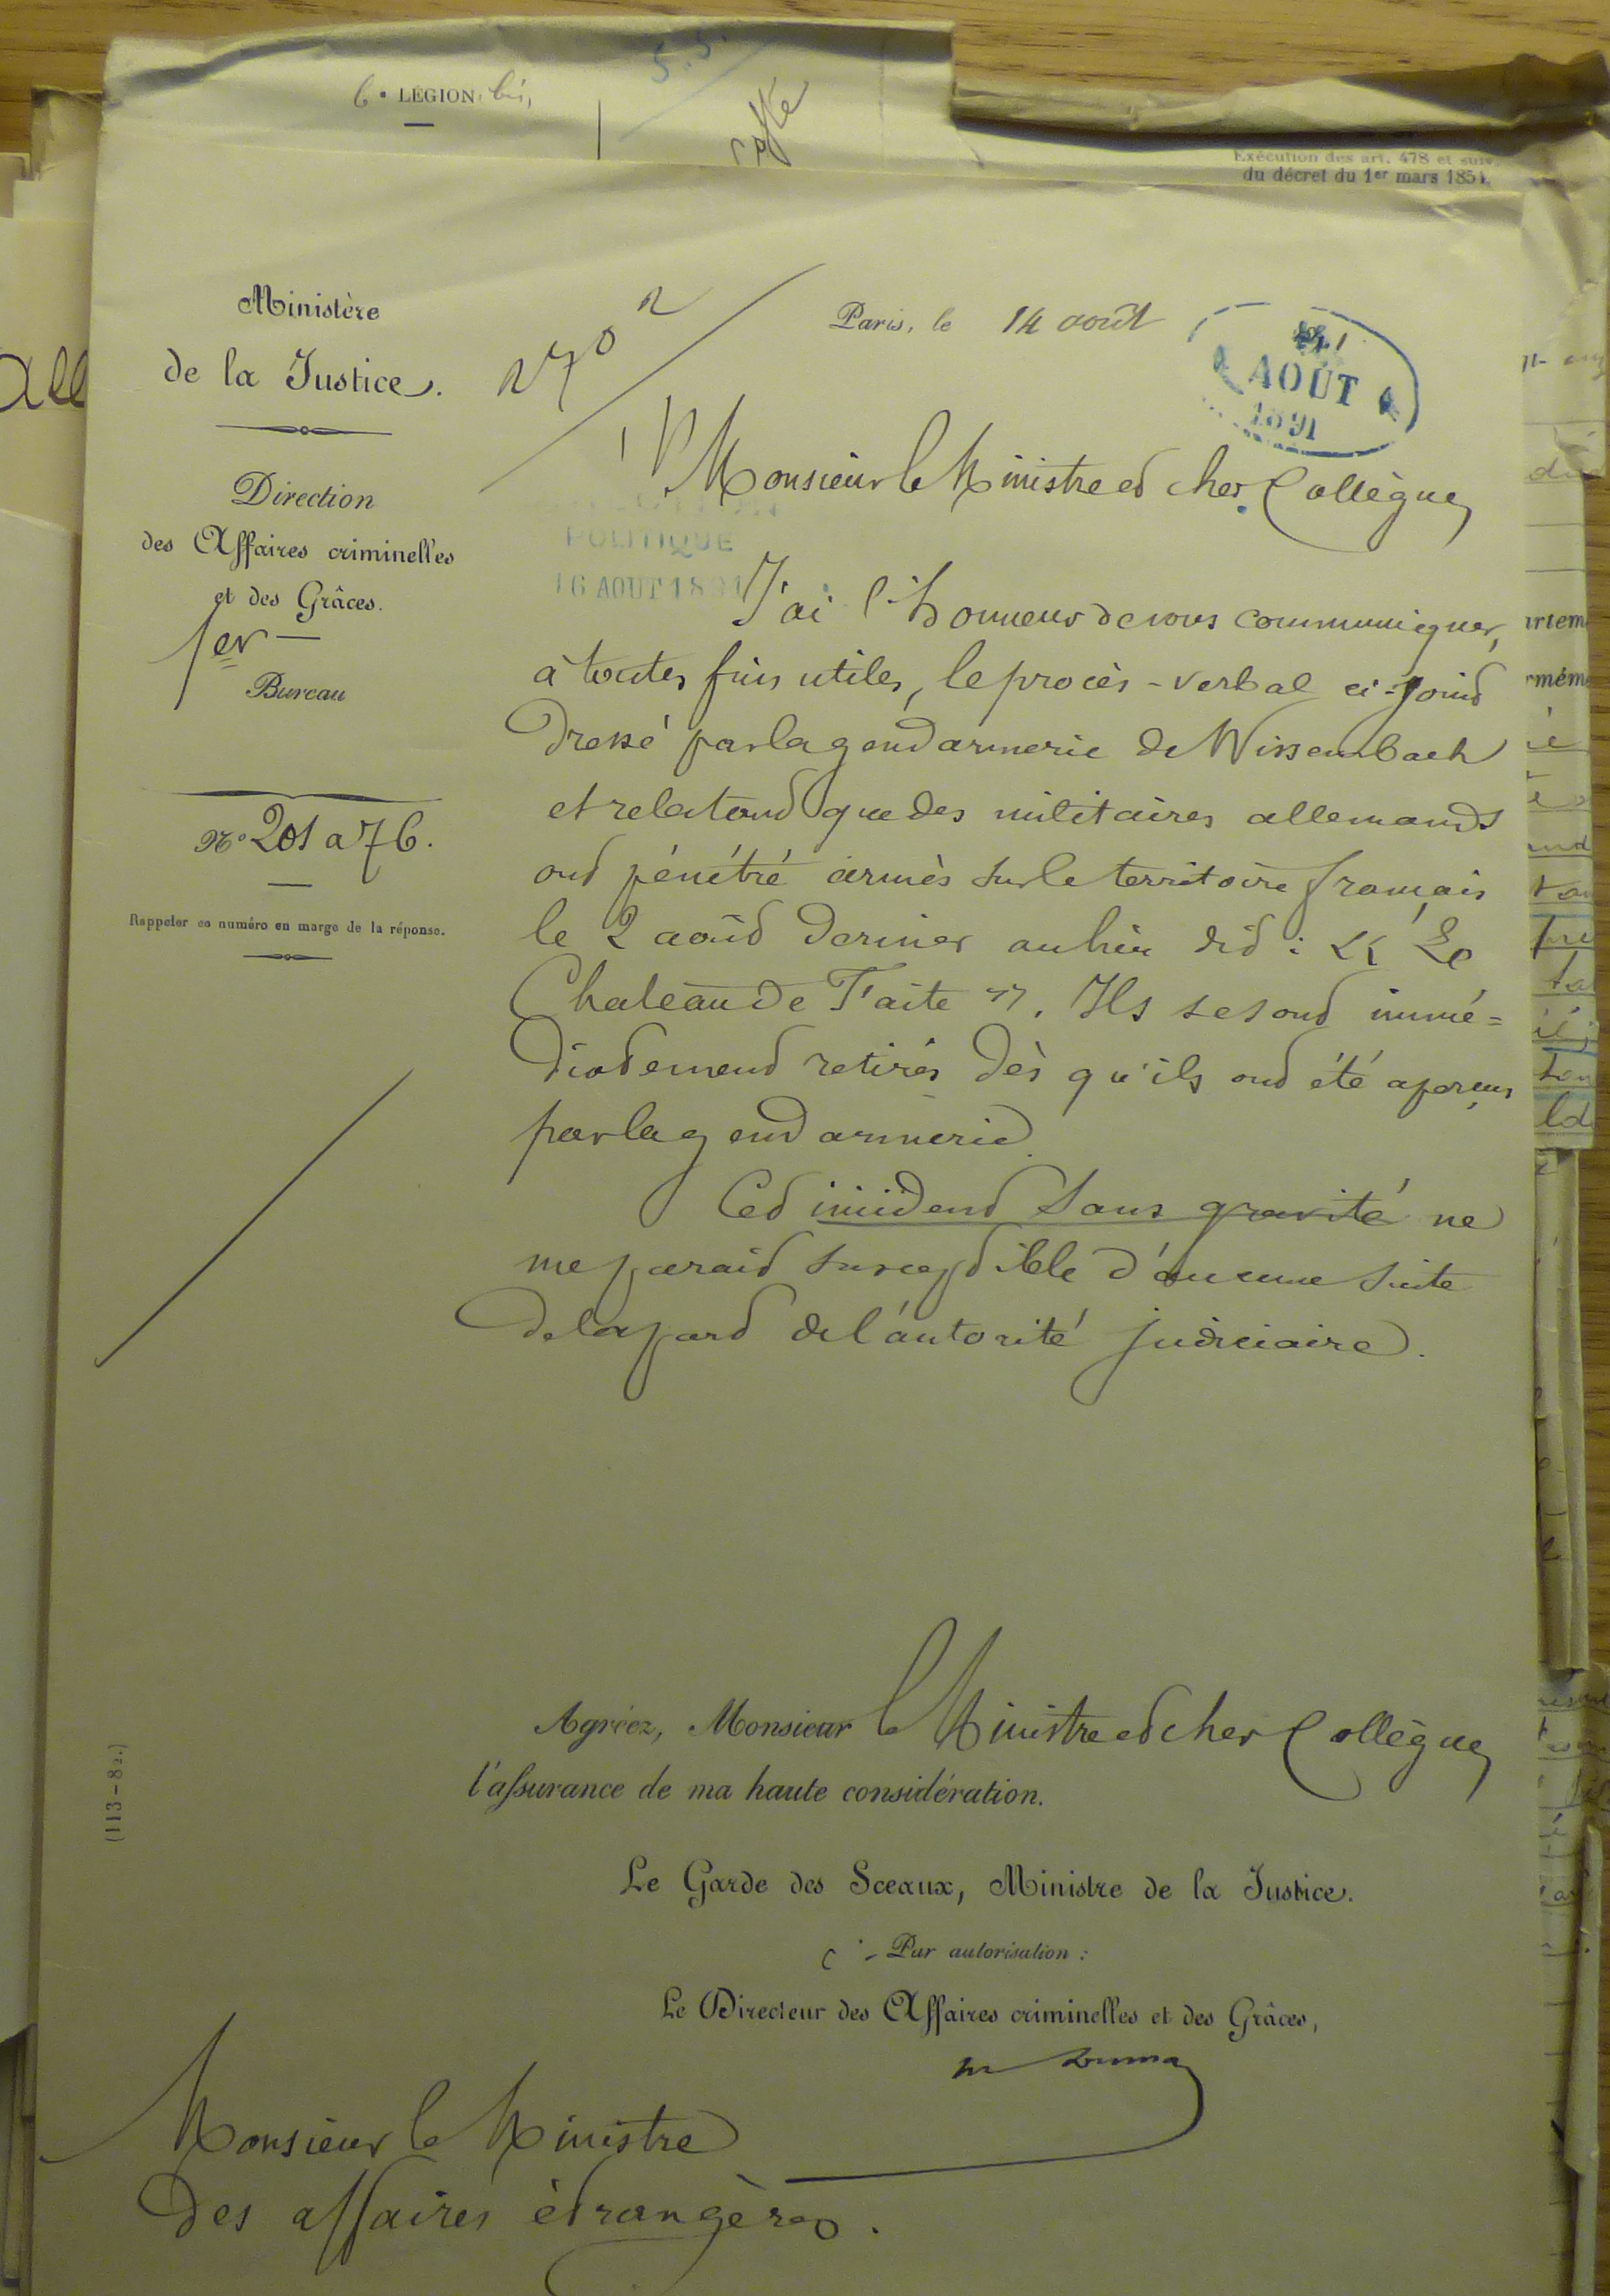 6e LÉGION bis,
Exécution des art. 478 et suiv.
du décret du 1er mars 1854.
Ministère
de la Justice.
Direction
des Affaires criminelles
et des Grâces.
1er
Bureau
No 201 a 76.
Rappeler ce numéro en marge de la réponse.
Paris, le 14 août
AOUT
1891
Monsieur le Ministre et cher Collègue,
POLITIQUE
16 AOUT 1891
J'ai l'honneur de vous communiquer,
à toutes fins utiles, le procès-verbal ci-joint
dressé par la gendarmerie de Wissembach
et relatant que des militaires allemands
ont pénétré armés sur le territoire français
le 2 août dernier au lieu dit : « Le
Chateau de Faite ». Ils se sont immé=
diatement retirés dès qu'ils ont été aperçus
par la gendarmerie.
Cet incident sans gravité ne
me parait susceptible d'aucune suite
de la part de l'autorité judiciaire.
Agréez, Monsieur le Ministre et cher Collègue,
l'assurance de ma haute considération.
Le Garde des Sceaux, Ministre de la Justice.
Par autorisation :
Le Directeur des Affaires criminelles et des Grâces,
Monsieur le Ministre
des affaires étrangères.
(113-82.)